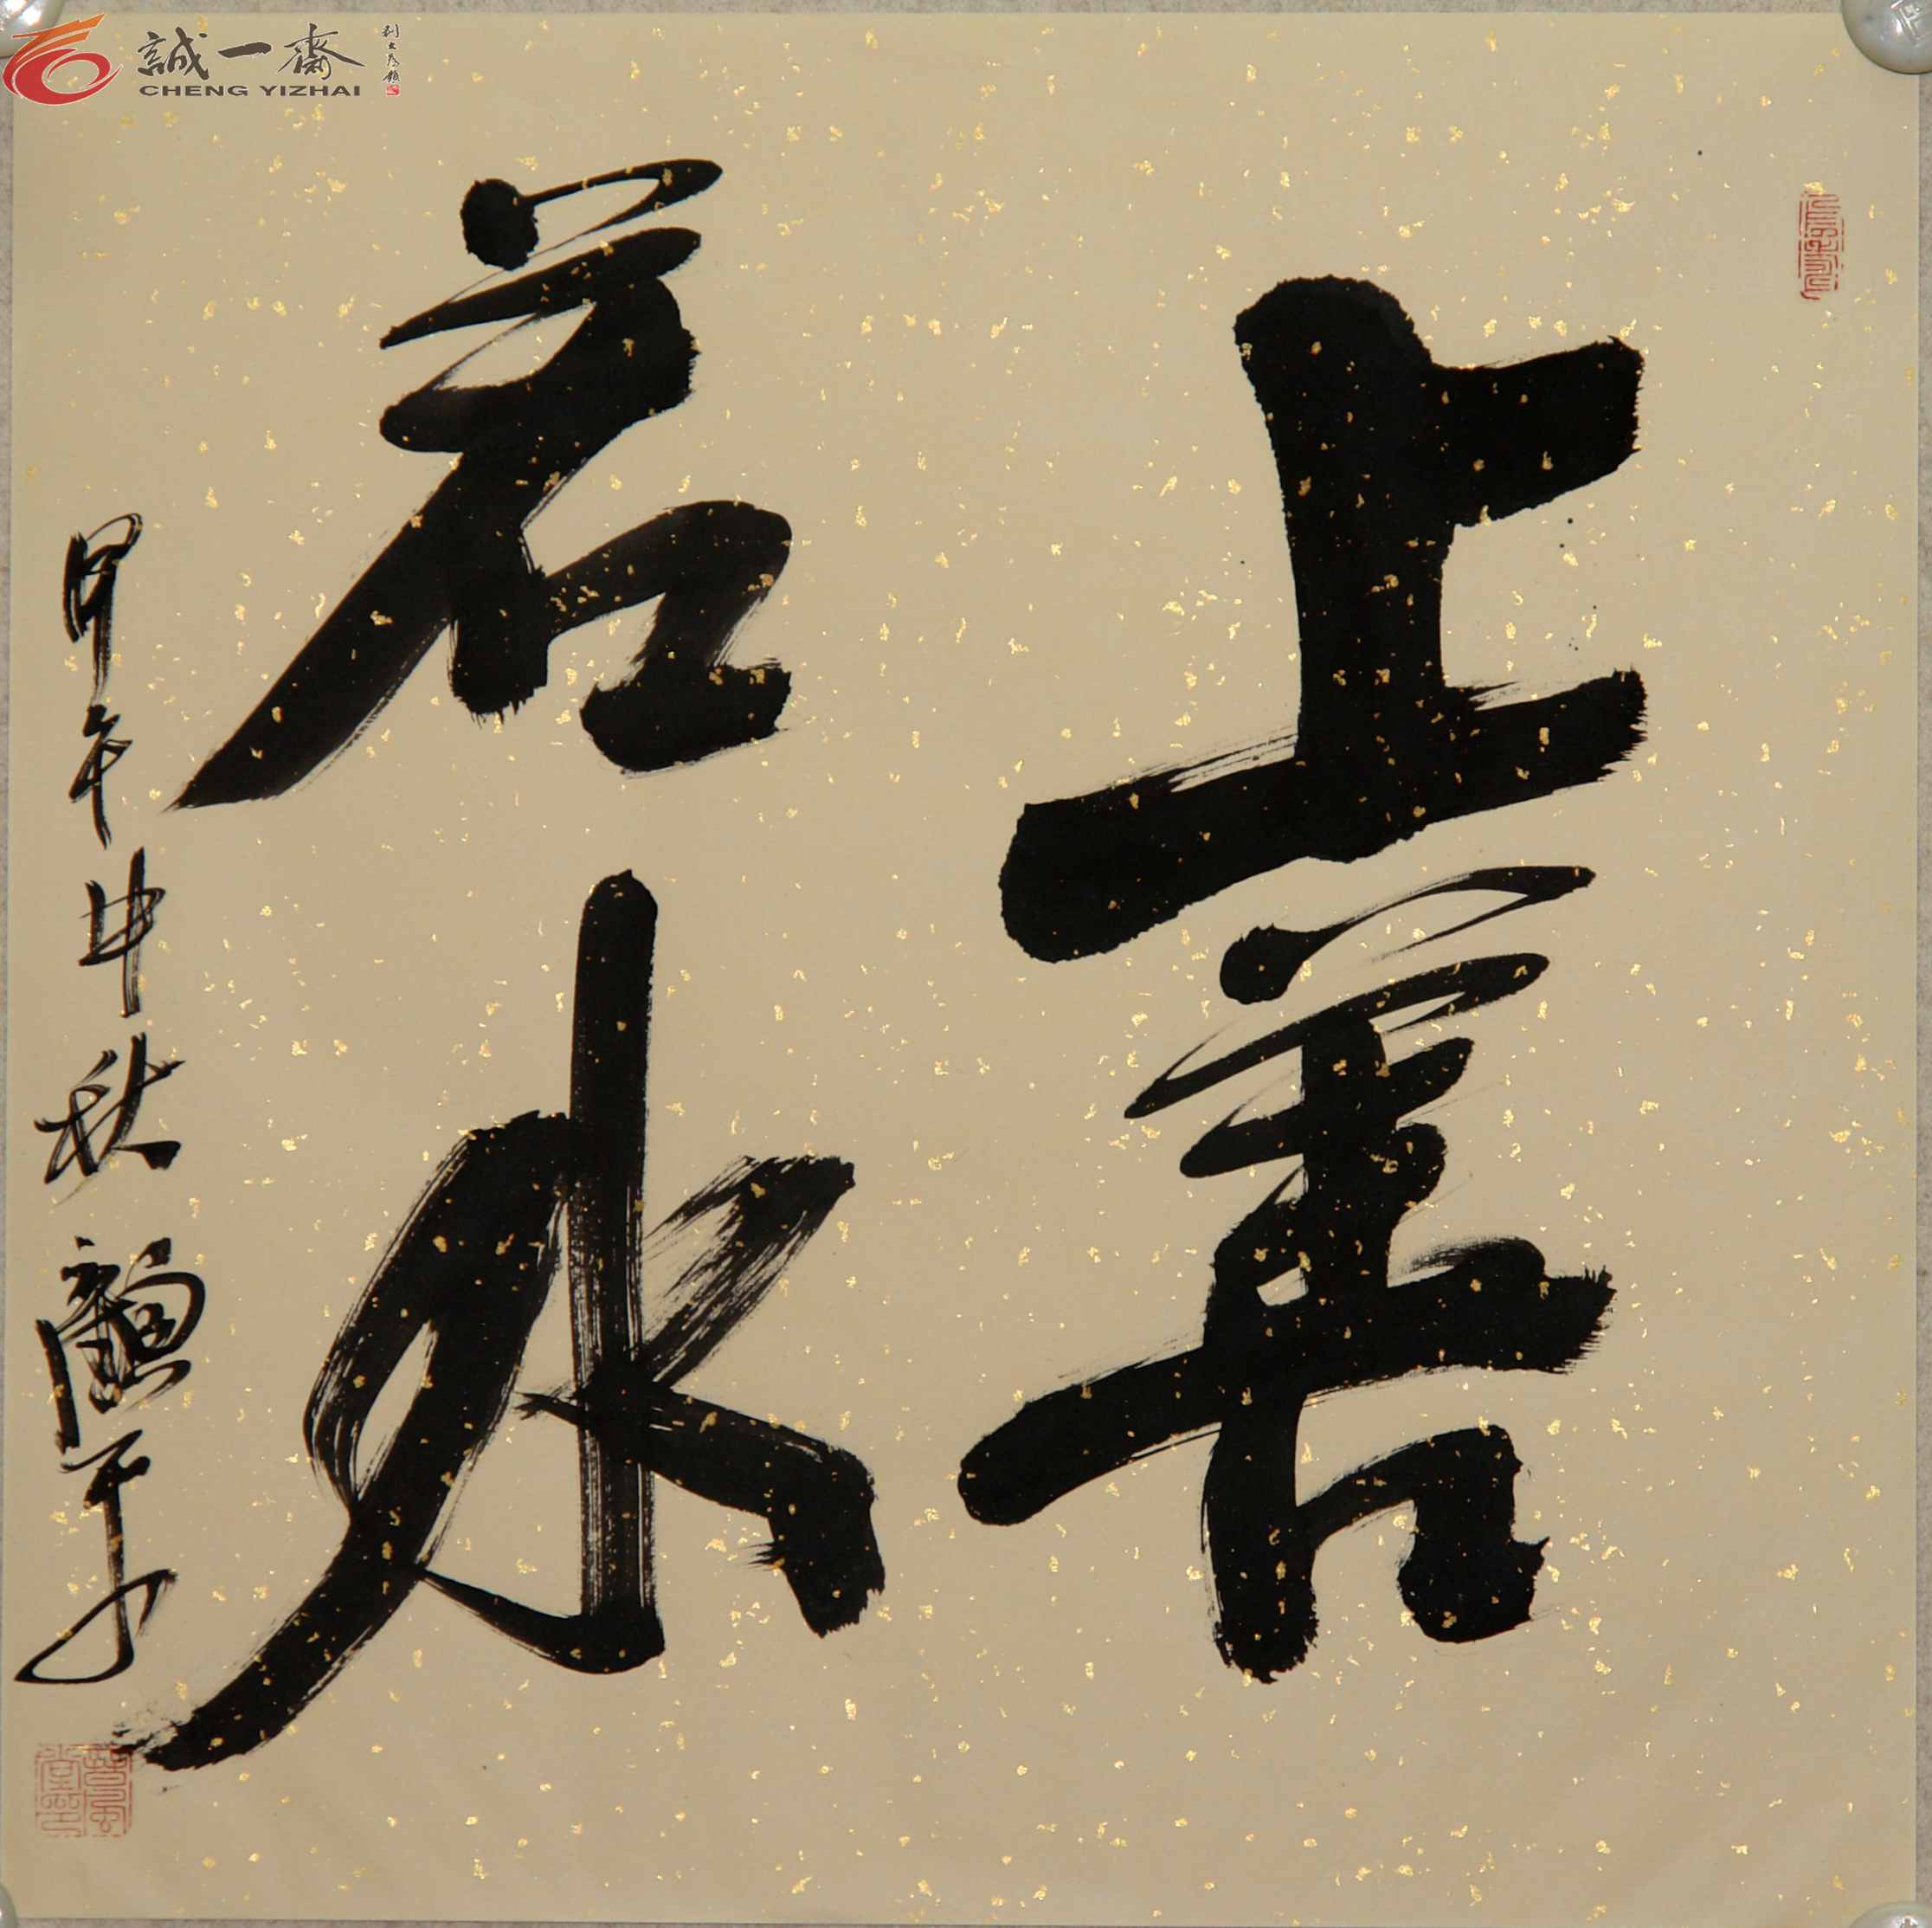 誠一齋
CHENG YIZHAI
上善
若水
甲午中秋